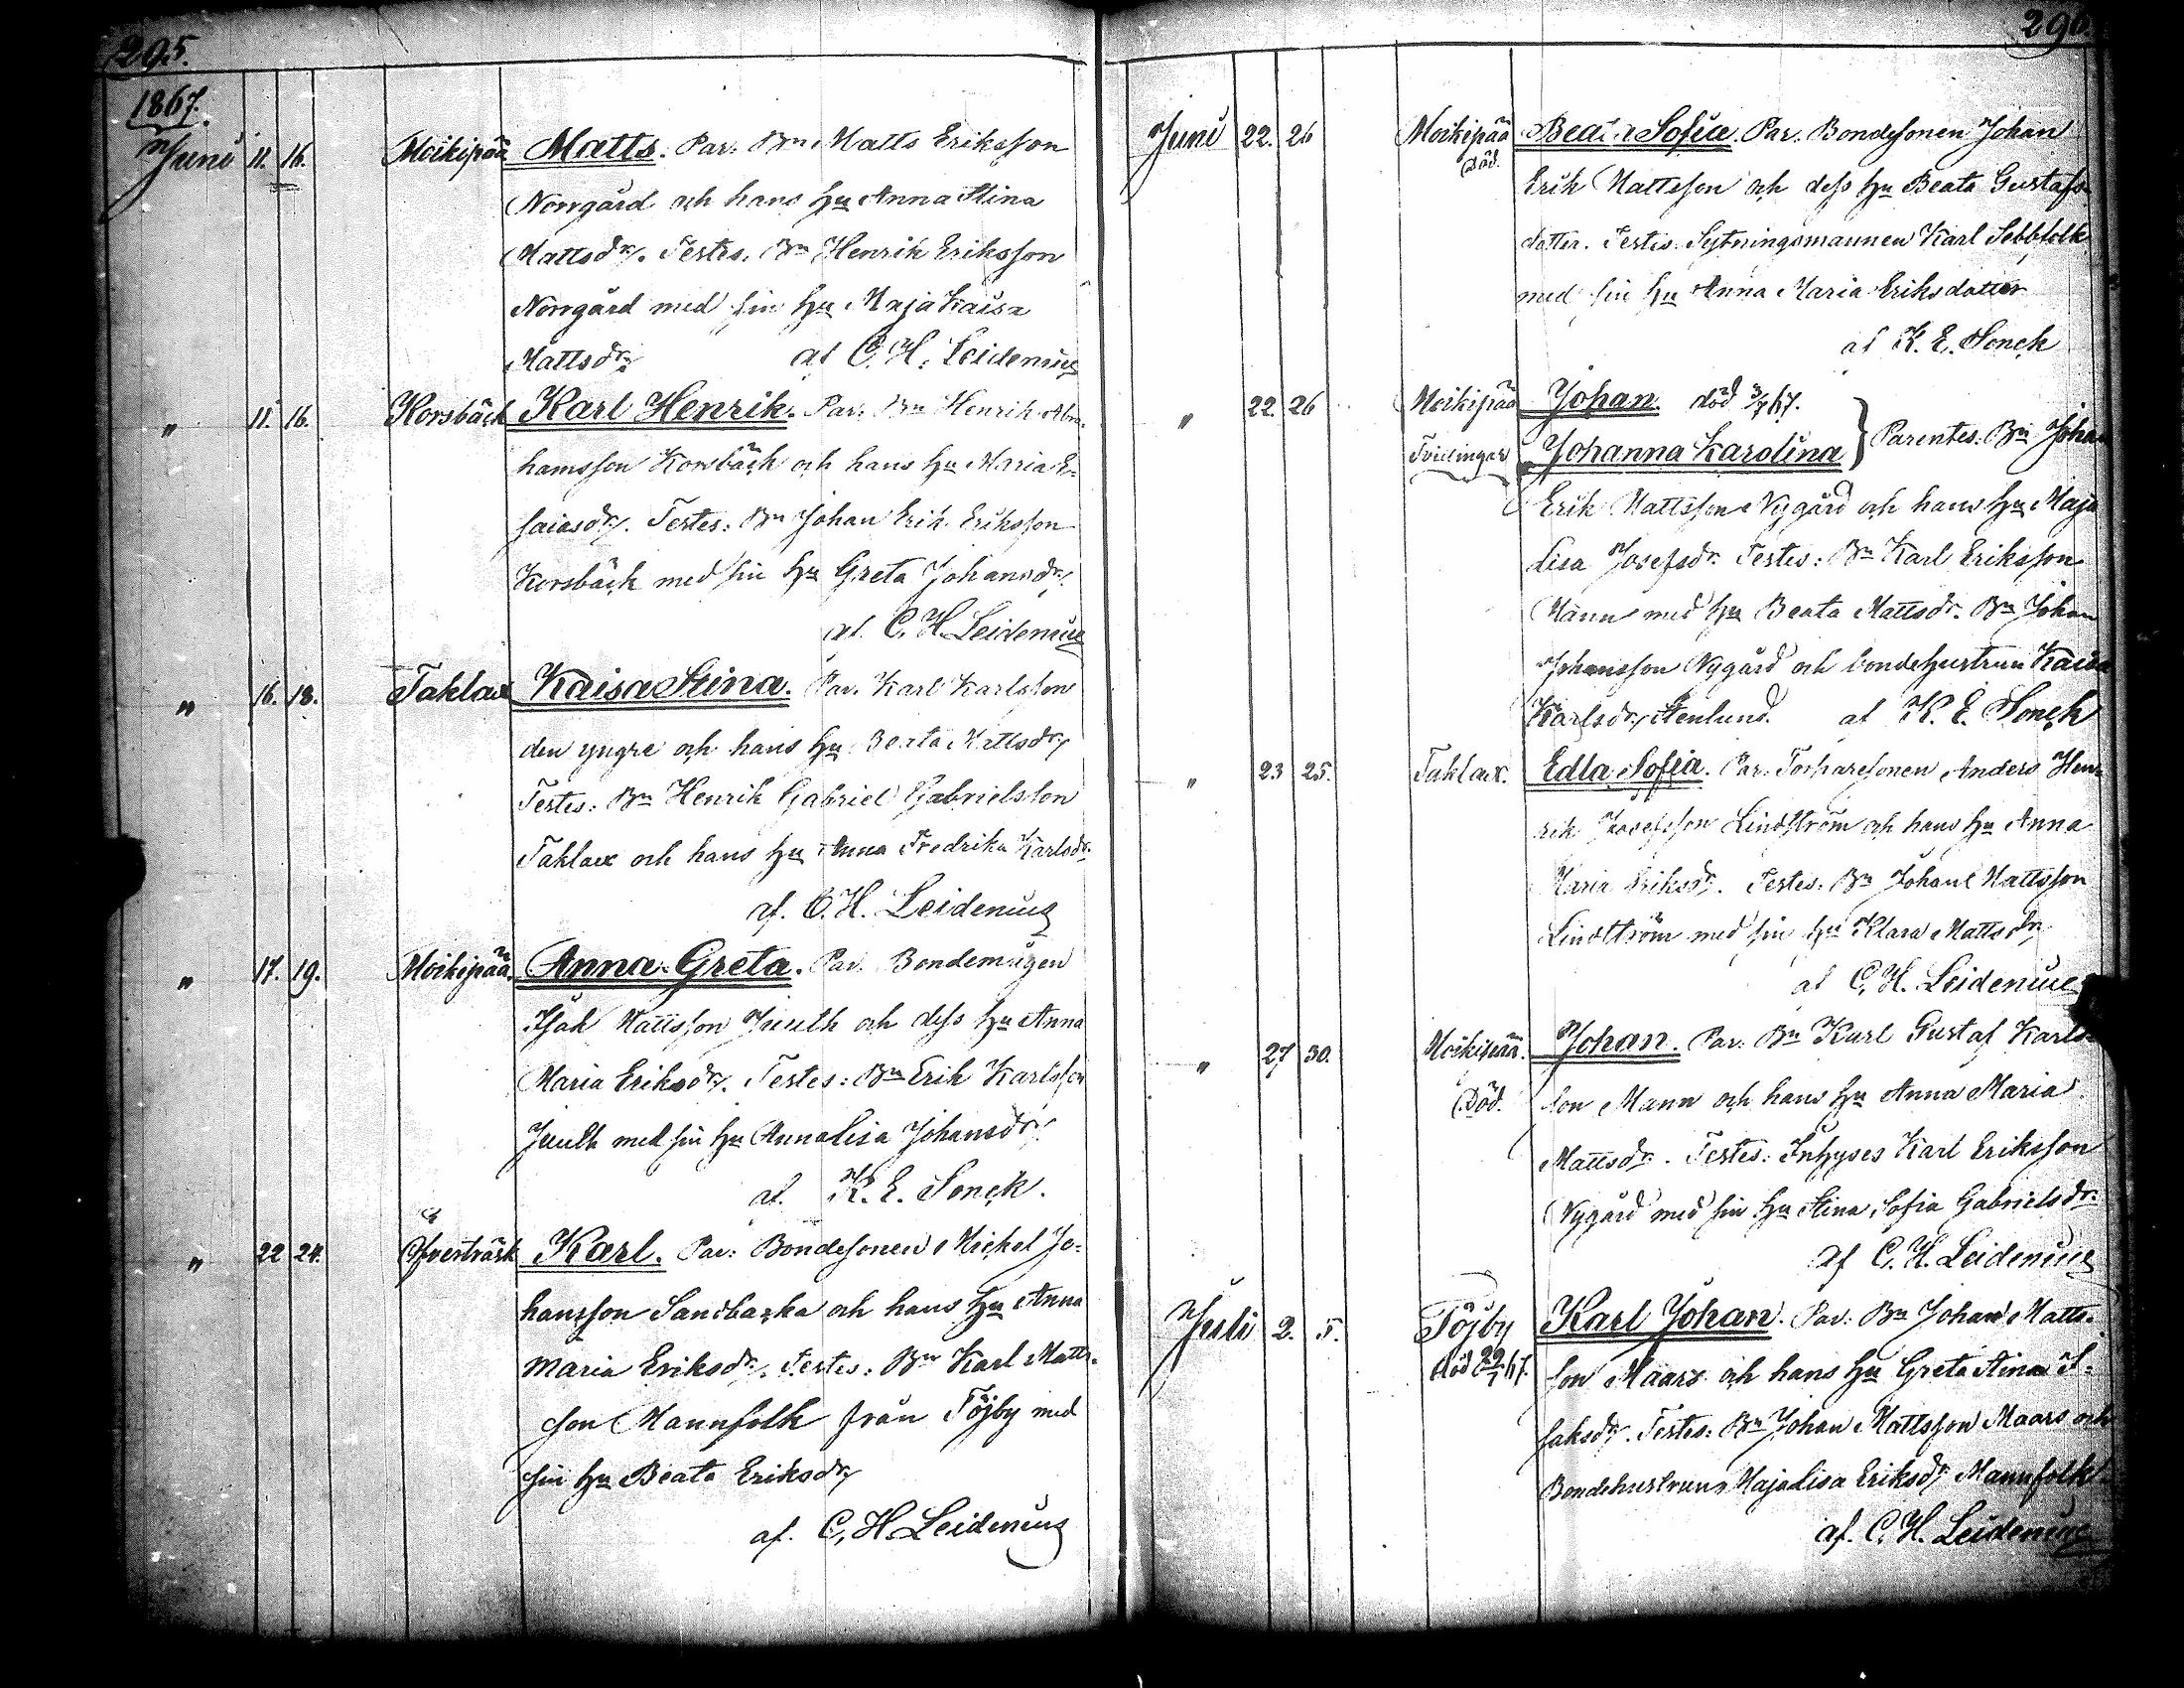 295.
1867.
Juni 11. 16. Moikipää Matts. Par: Bn Matts Eriksson
Norrgård och hans hu Anna Stina
Mattsdr. Testes. Bn Henrik Eriksson
Norrgård med sin hu Maja Kaisa
Mattsdr af C. H. Leidenius
" 11. 16. Korsbäck Karl Henrik. Par: Bn Henrik Abra-
hamsson Korsbäck och hans hu Maria E-
saiasdr. Testes: Bn Johan Erik Eriksson
Korsbäck med sin hu Greta Johansdr.
af. C. H. Leidenius
" 16. 18. Taklax Kaisa Stina. Par. Karl Karlsson
den yngre och hans hu Beata Mattsdr
Testes: Bn Henrik Gabriel Gabrielsson
Taklax och hans hu Anna Fredrika Karlsdr.
af. C. H. Leidenius
" 17. 19. Moikipää. Anna Greta. Par. Bondemågen
Isak Mattsson Juuth och dess hu Anna
Maria Eriksdr. Testes: Bn Erik Karlsson
Juuth med sin hu Annalisa Johansdr.
af. K. E. Sonck.
" 22 24. Öfverträsk Karl. Par: Bondesonen Mickel Jo-
hansson Sandbacka och hans hu Anna
Maria Eriksdr. Testes: Bn Karl Matts-
son Mannfolk från Töjby med
sin hu Beata Eriksdr
af. C. H. Leidenius
290.
Juni 22. 26 Moikipää Beata Sofia. Par: Bondesonen Johan
Död.
Erik Mattsson och dess hu Beata Gustafs-
dotter. Testes: Sytningsmannen Karl Sebbfolk
med sin hu Anna Maria Eriksdotter
af K. E. Sonck
" 22 26 Moikipää Johan. död 3/7 67.
Tvillingar Johanna Karolina } Parentes. Bn Johan
Erik Mattsson Nygård och hans hu Maja
Lisa Josefsdr. Testes: Bn Karl Eriksson
Männ med hu Beata Mattsdr. Bn Johan
Johansson Nygård och bondehustrun Kaisa
Karlsdr Stenlund. af K. E. Sonck
" 23 25. Taklax. Edla Sofia. Par: Torparesonen Anders Hen-
rik Josefsson Lindström och hans hu Anna
Maria Eriksdr. Testes: Bn Johan Mattsson
Lindström med sin hu Klara Mattsdr
af C. H. Leidenius
" 27 30. Moikipää. Johan. Par: Bn Karl Gustaf Karls-
Död.
son Mann och hans hu Anna Maria
Mattsdr. Testes: Inhyses Karl Eriksson
Nygård med sin hu Stina Sofia Gabrielsdr.
af C. H. Leidenius
Juli 2. 5. Töjby Karl Johan. Par: Bn Johan Matts-
död 22/7 67.
son Maars och hans hu Greta Stina I-
saksdr. Testes: Bn Johan Mattsson Maars och
Bondehustrun Majalisa Eriksdr Mannfolk.
af. C. H. Leidenius